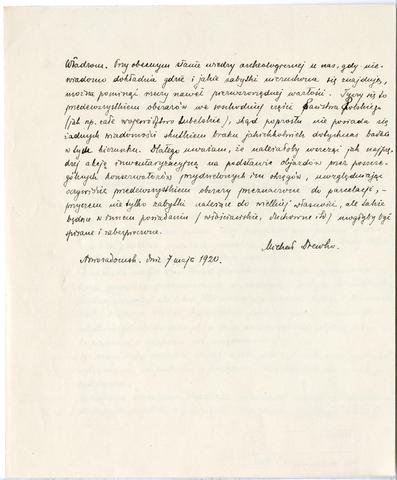 władzom. Przy obecnym stanie wiedzy archeologicznej u nas, gdy nie-
wiadomo dokładnie gdzie i jakie zabytki nieruchome się znajdują,
można pominąć rzeczy nawet pierwszorzędnej wartości. Tyczy się to
przedewszystkiem obszarów we wschodniej części Państwa Polskiego
(jak np. całe województwo Lubelskie), skąd poprostu nie posiada się
żadnych wiadomości skutkiem braku jakichkolwiek dotychczas badań
w tym kierunku. Dlatego uważam, że należałoby wszcząć jak najprę-
dzej akcję inwentaryzacyjną na podstawie objazdów przez poszcze-
gólnych konserwatorów przydzielonych im okręgów, uwzględniając
oczywiście przedewszystkiem obszary przeznaczone do parcelacji, -
przyczem nie tylko zabytki należące do wielkiej własności, ale także
będące w innem posiadaniu (włościańskie, duchowne itd) mogłyby być
spisane i zabezpieczone.
Michał Drewko.
Noworadomsk, dnia 7 maja 1920.